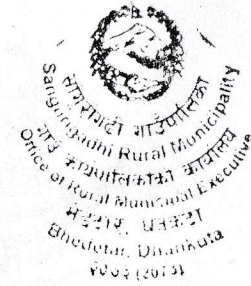 सागुरीगढी गाउँपालिका
Sangurigadhi Rural Municipality
गाउँ कार्यपालिकाको कार्यालय
Office of Rural Municipal Executive
भेडेटार, धनकुटा
Bhedetar, Dhankuta
२०७३ (2073)